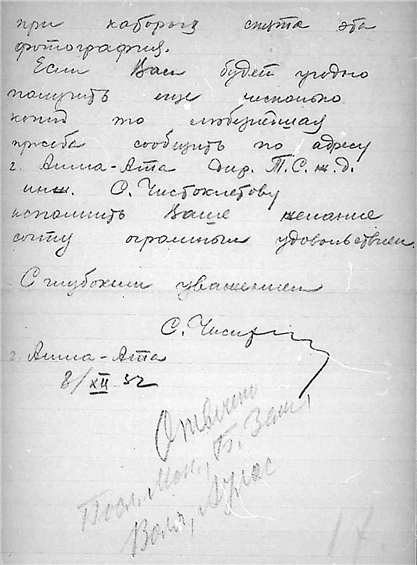 при которых снята эта
фотография.
Если Вам будет угодно
получить еще несколько
копий то любезнейшая
просьба сообщить по адресу
г. Алма-Ата Дир. Т.С.ж.д.
инж. С. Чистоклетову
исполнить Ваше желание
сочту огромным удовольствием.
С глубоким уважением
С. Чист
г. Алма-Ата
8/XII 32
Отвечено
Посл. Мон., Б. Зем.,
Воля,
14.